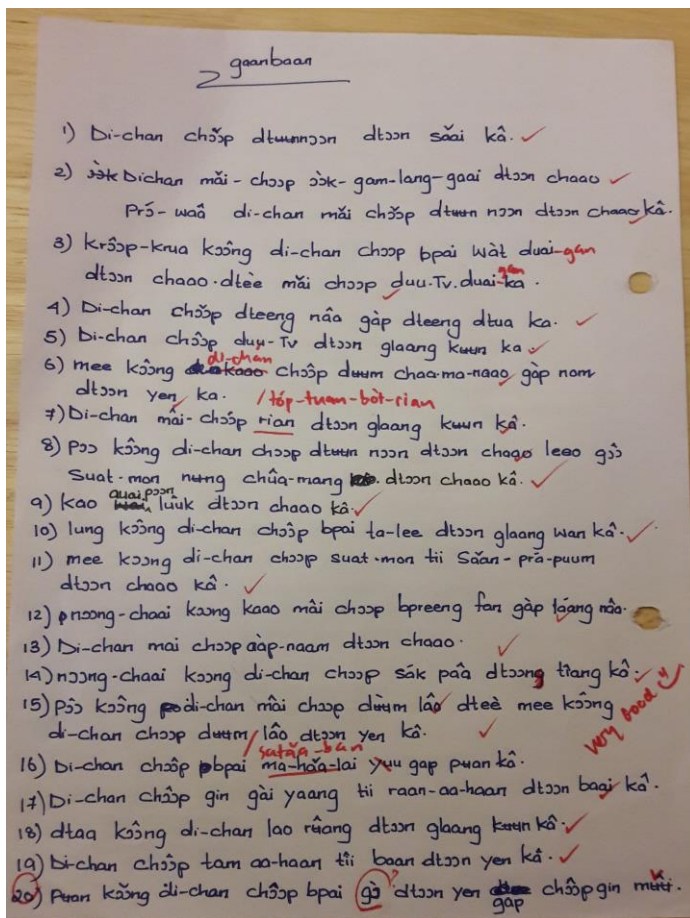 gaanbaan
1) Di-chan chɔ̂ɔp dtʉʉnnɔɔn dtɔɔn sǎai kâ.
2) Dichan mǎi-chɔɔp ɔ̀ɔk-gam-lang-gaai dtɔɔn chaao
Prɔ́-waâ di-chan mǎi chɔ̌ɔp dtʉʉn nɔɔn dtɔɔn chaao kâ.
3) krɔ̂ɔp-krua kɔɔ̂ng di-chan chɔɔp bpai wàt duai-gan
dtɔɔn chaao. dtèe mǎi chɔɔp duu.Tv.duai-gan ka.
4) Di-chan chɔ̌ɔp dteeng nâa gàp dteeng dtua ka.
5) Di-chan chɔ̂ɔp duu-Tv dtɔɔn glaang kʉʉn ka
di-chan
6) mee kɔɔ̂ng chɔɔp dʉʉm chaa-ma-naao gàp nom
dtɔɔn yen ka. /tóp-tuan-bòt-rian
7) Di-chan mâi-chɔɔ́p rian dtɔɔn glaang kʉʉn kâ.
8) pɔɔ kɔɔ̂ng di-chan chɔɔp dtʉʉn nɔɔn dtɔɔn chaao leeo gɔ̂ɔ
Suat-mon nʉng chûa-mang dtɔɔn chaao kâ.
9) kao quai pɔɔn lûuk dtɔɔn chaao kâ
10) lung kɔɔ̂ng di-chan chɔɔ̂p bpai ta-lee dtɔɔn glaang wan kâ.
11) mee kɔɔng di-chan chɔɔp suat-mon tii Sǎan-prá-puum
dtɔɔn chaao kâ.
12) nɔɔng-chaai kɔɔng kaao mâi chɔɔp bpreeng fan gàp láang nâa.
13) Di-chan mai chɔɔp aàp-naam dtɔɔn chaao.
14) nɔɔng-chaai kɔɔng di-chan chɔɔp sák paâ dtɔɔng tîang kâ.
15) pɔ̂ɔ kɔɔ̂ng di-chan mâi chɔɔp dʉ̀ʉm lâo dtèe mee kɔɔ̂ng
di-chan chɔɔp dʉʉm lâo dtɔɔn yen kâ.
very Good
/satǎa-ban
16) Di-chan chɔɔ̂p bpai ma-hǎa-lai gap pʉan kâ.
17) Di-chan chɔɔ̂p gin gài yaang tii raan-aa-haan dtɔɔn baai kâ.
18) dtaa kɔɔ̂ng di-chan lao rʉ̂ang dtɔɔn glaang kʉʉn kâ.
19) Di-chan chɔɔ̂p tam aa-haan tîi baan dtɔɔn yen kâ.
20) Pʉan kɔ̌ɔng di-chan chɔɔ̂p bpai gɔ̀ dtɔɔn yen chɔɔ̂p gin
gap